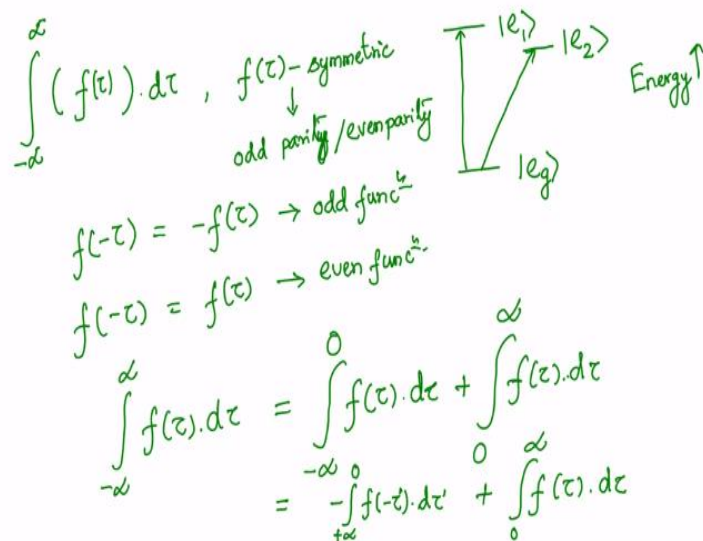 ∫_{-∝}^{∝} (f(τ)).dτ , f(τ) - symmetric
↓
odd parity/even parity
|e₁⟩
|e₂⟩
Energy↑
|eg⟩
f(-τ) = -f(τ) → odd funcⁿ
f(-τ) = f(τ) → even funcⁿ
∫_{-∝}^{∝} f(τ).dτ = ∫_{-∝}^{0} f(τ).dτ + ∫_{0}^{∝} f(τ).dτ
= -∫_{+∝}^{0} f(-τ').dτ' + ∫_{0}^{∝} f(τ).dτ